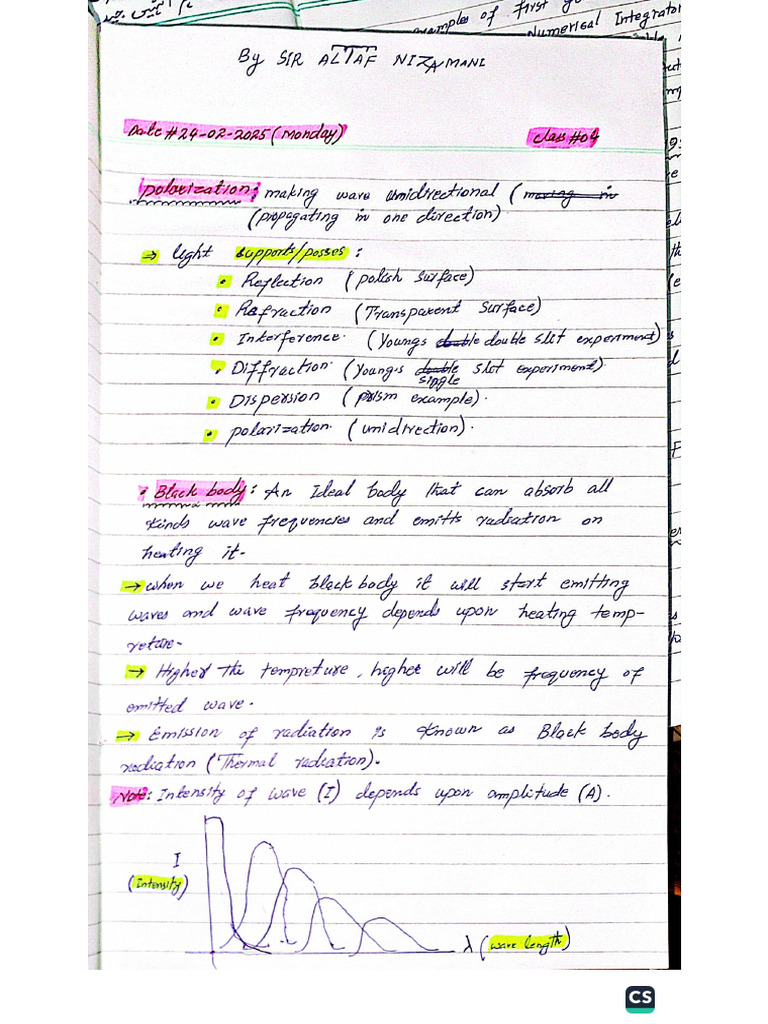 By SIR ALTAF NIZAMANI
Date # 24-02-2025 (Monday)
class #04
polarization: making wave unidirectional (moving in
(propagating in one direction)
⇒ light supports/posses:
• Reflection (polish surface)
• Refraction (Transparent Surface)
• Interference. (Youngs double double slit experiment)
• Diffraction. (Young's double slit experiment).
single
• Dispersion (prism example).
• polarization. (unidirection).
• Black body: An Ideal body that can absorb all
kinds wave frequencies and emitts radiation on
heating it.
→ when we heat black body it will start emitting
waves and wave frequency depends upon heating temp-
reture.
→ Higher the tempreture, higher will be frequency of
emitted wave.
→ Emission of radiation is known as Black body
radiation (Thermal radiation).
Note: Intensity of wave (I) depends upon amplitude (A).
I
(Intensity)
λ (wave length)
examples of First
Numerical Integrator
CS